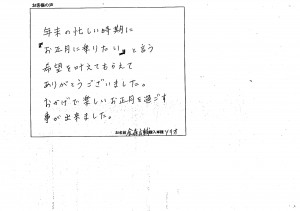 お客様の声
年末の忙しい時期に
『お正月に乗りたい』と言う
希望を叶えてもらえて
ありがとうございました。
おかげで楽しいお正月を過ごす
事が出来ました。
お名前 購入車種 ソリオ